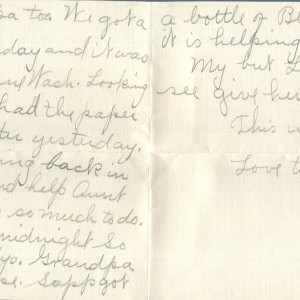 pa too. We got a
day and it was
Wash. Looking
had the paper
yesterday.
ing back in
nd help Aunt
so much to do.
midnight So
Grandpa
se. Sapp got
a bottle of Be
it is helping
My but L
see give her
This i
Love t